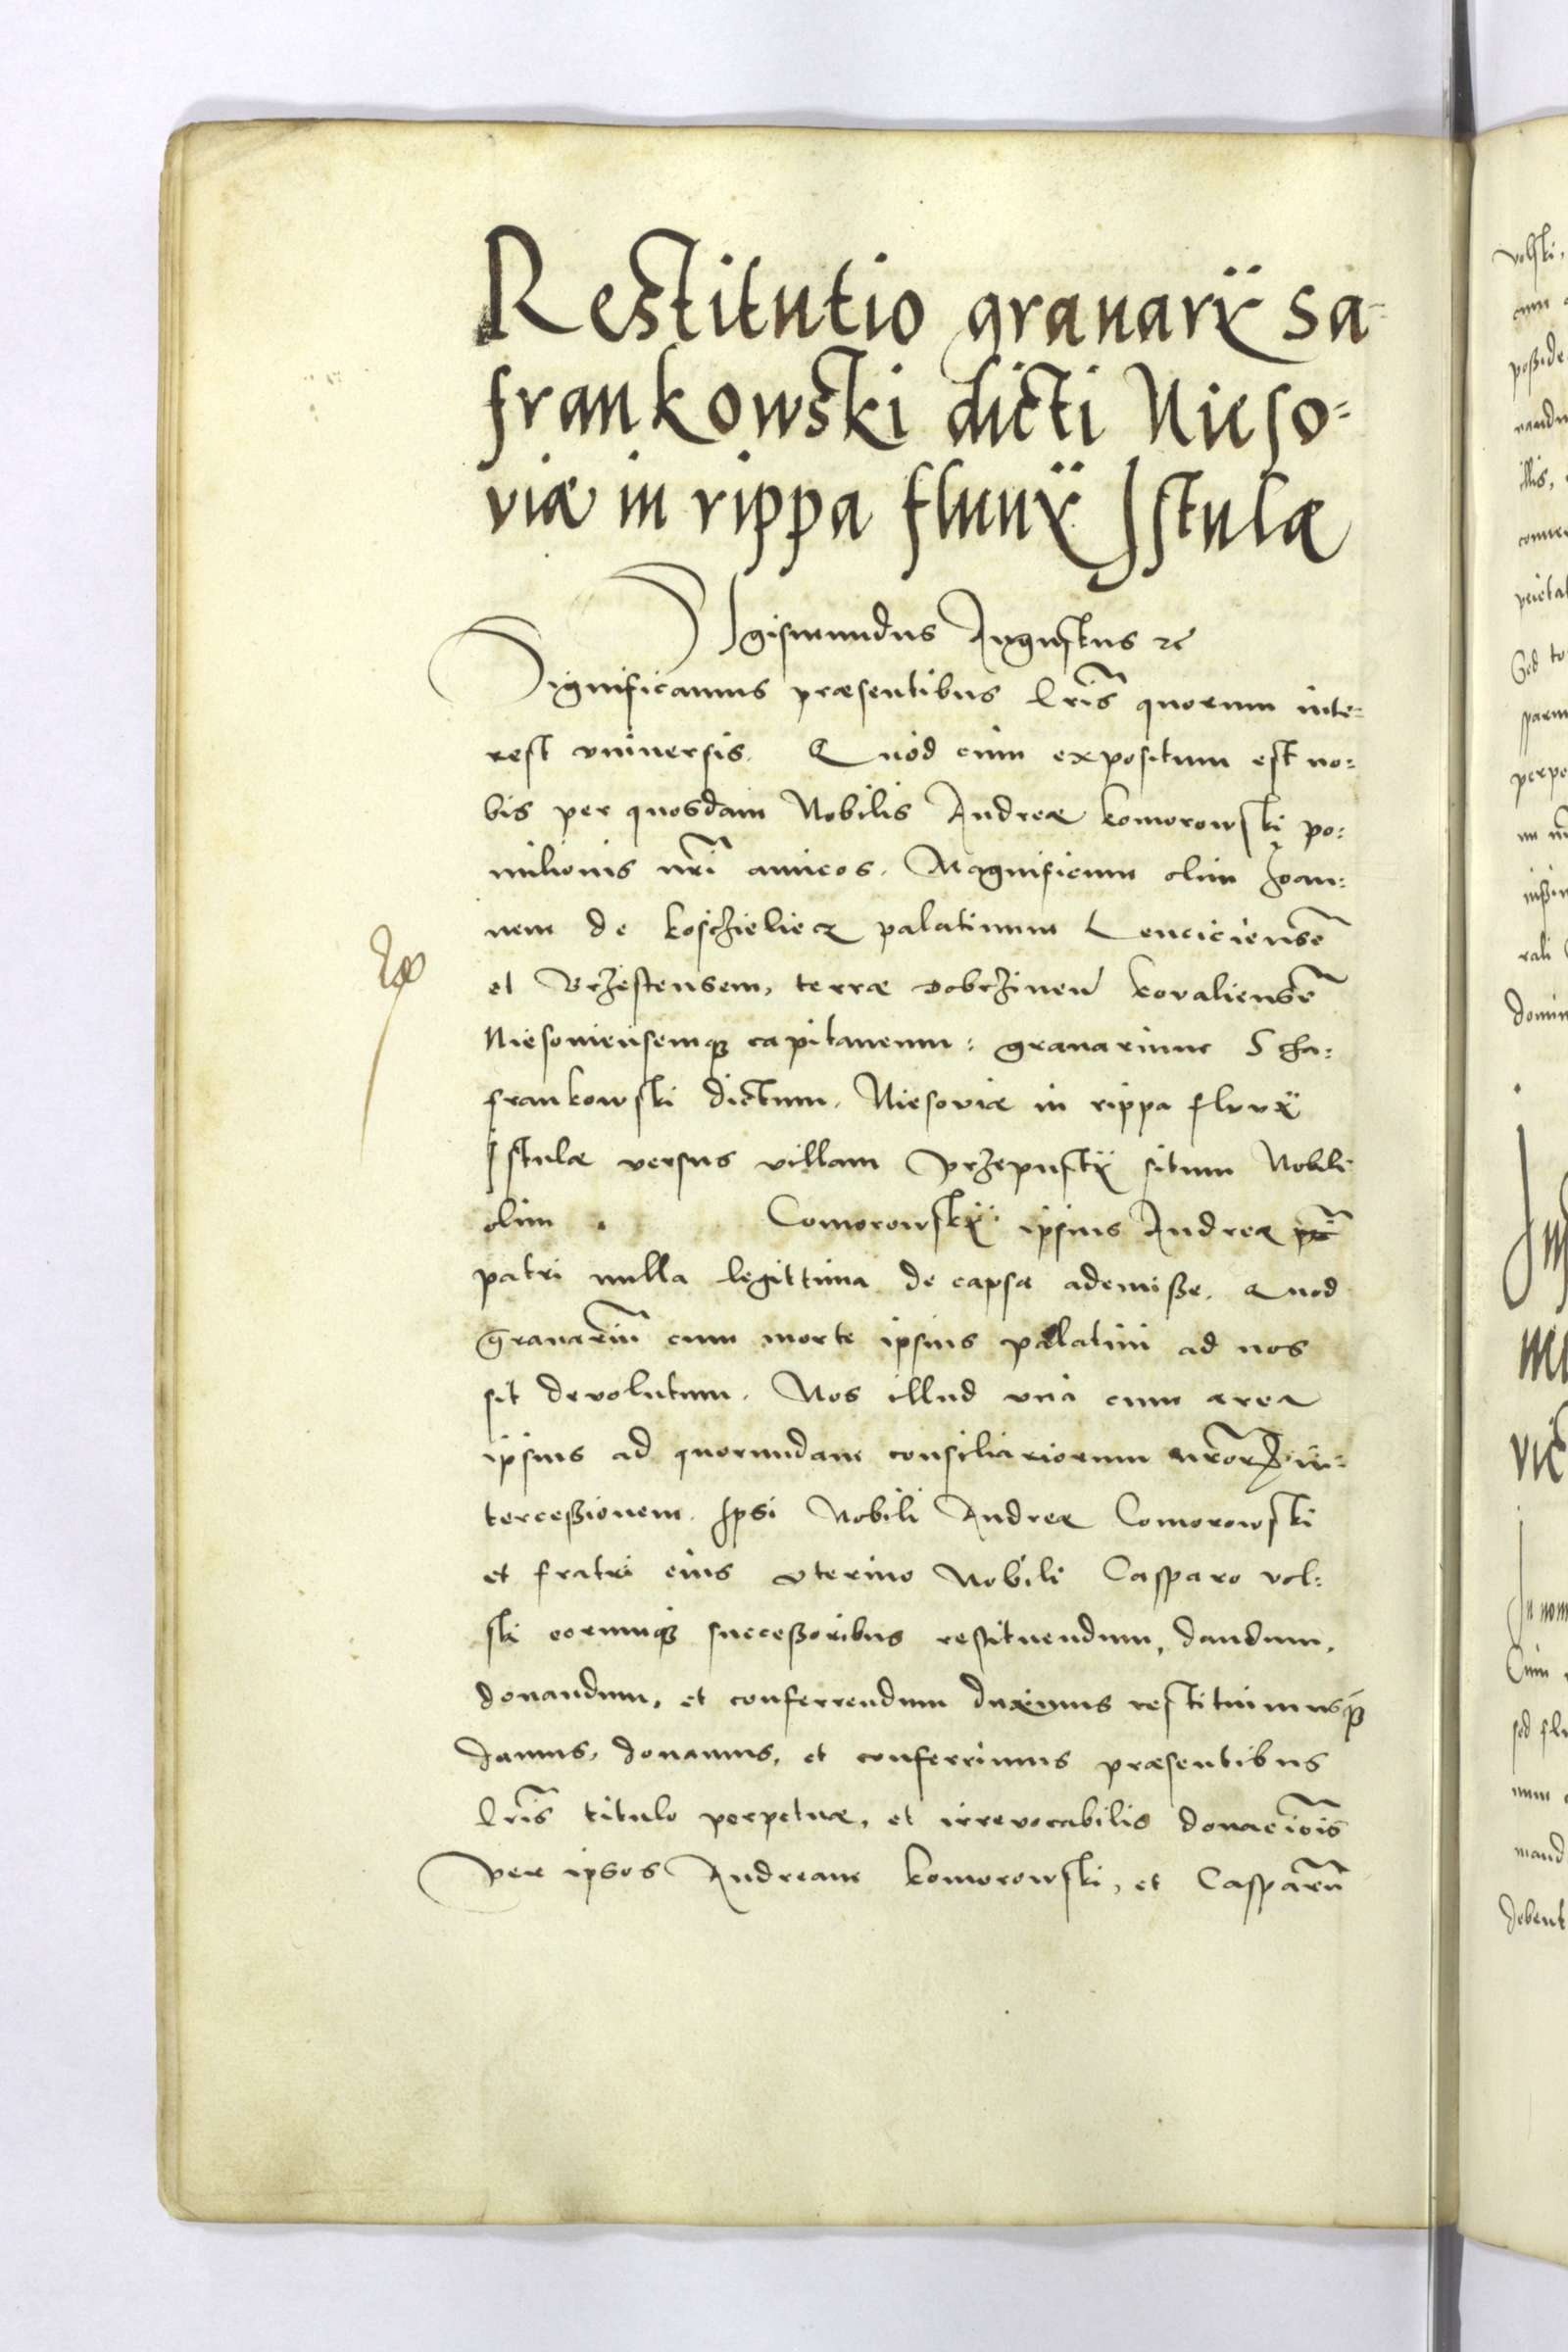 Restitutio granarÿ sa-
frankowski dicti Nieso=
viæ in rippa fluuÿ Istulæ
Sigismundus Augustus &c
Significamus præsentibus lr̃is quorum inte=
rest vniuersis. Quod cum expositum est no=
bis per quosdam Nobilis Andreæ komorowski po=
milionis nr̃i amicos. Magnificum olim Joan=
nem de koschieliecz palatinum Lenciciensẽ
et Brzestensem, terræ Dobrzineñ kovaliensẽ
Niesouiensemqꝫ capitaneum: granarium Scha=
frankowski dictum, Niesoviæ in rippa fluvÿ
Istulæ versus villam Przepustÿ situm Nobili
olim . Comorowskÿ ipsius Andreæ
patri nulla legittima de capsa ademisse. Quod
granariũ cum morte ipsius palatini ad nos
sit devolutum. Nos illud vna cum area
ipsius ad quorundam consiliariorum nr̃orꝝ in=
tercessionem. Ipsi Nobili Andreæ Comorowski
et fratri eius vterino Nobili Casparo vol=
ski eorumqꝫ successoribus restituendum, dandum,
donandum, et conferrendum duximus restituimusqꝫ
damus, donamus, et conferrimus præsentibus
lr̃is titulo perpetuæ, et irrevocabilis donaciõis
Per ipsos Andream komorowski, et Casparũ
volski,